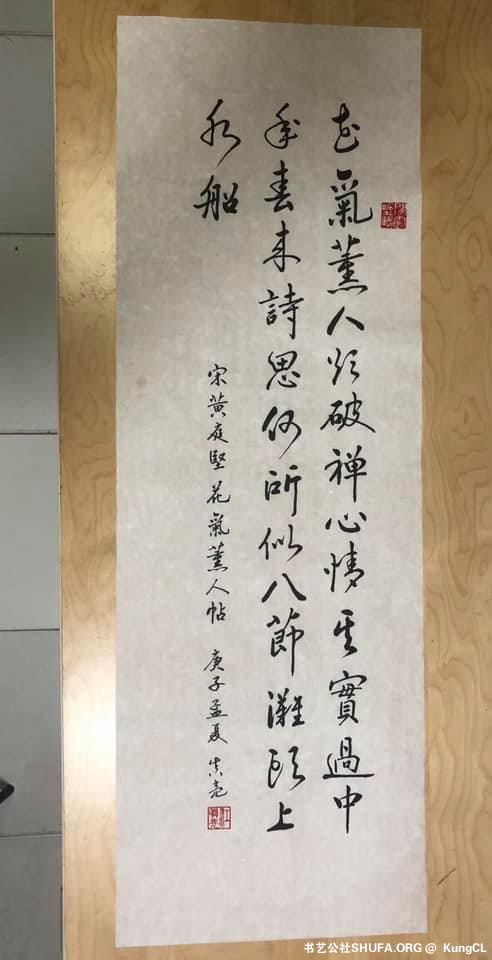 花氣薰人欲破禅心情其實過中
年春来詩思何所似八節灘頭上
水船
宋黄庭堅花氣薰人帖 庚子孟夏 真亮
书艺公社SHUFA.ORG @ KungCL